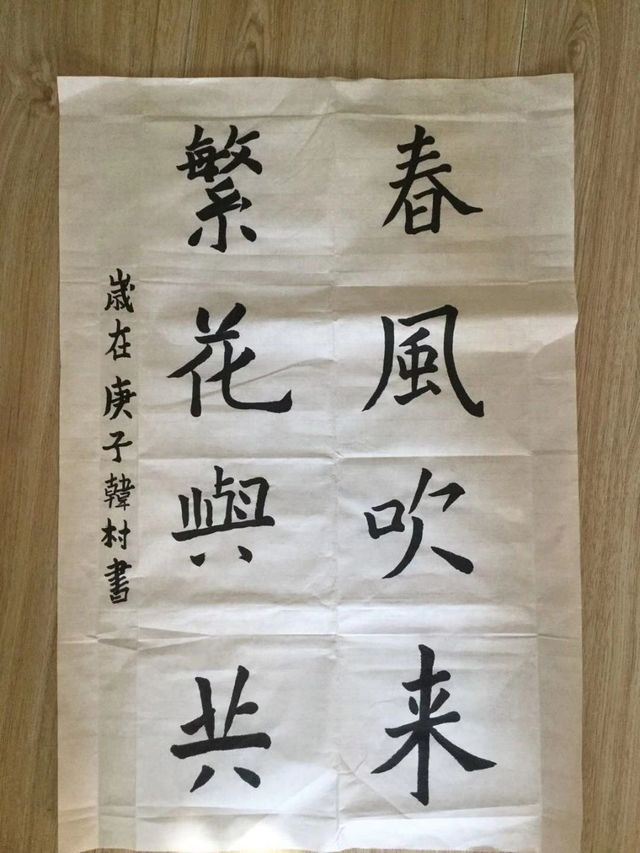 春風吹来
繁花與共
歲在庚子韓村書